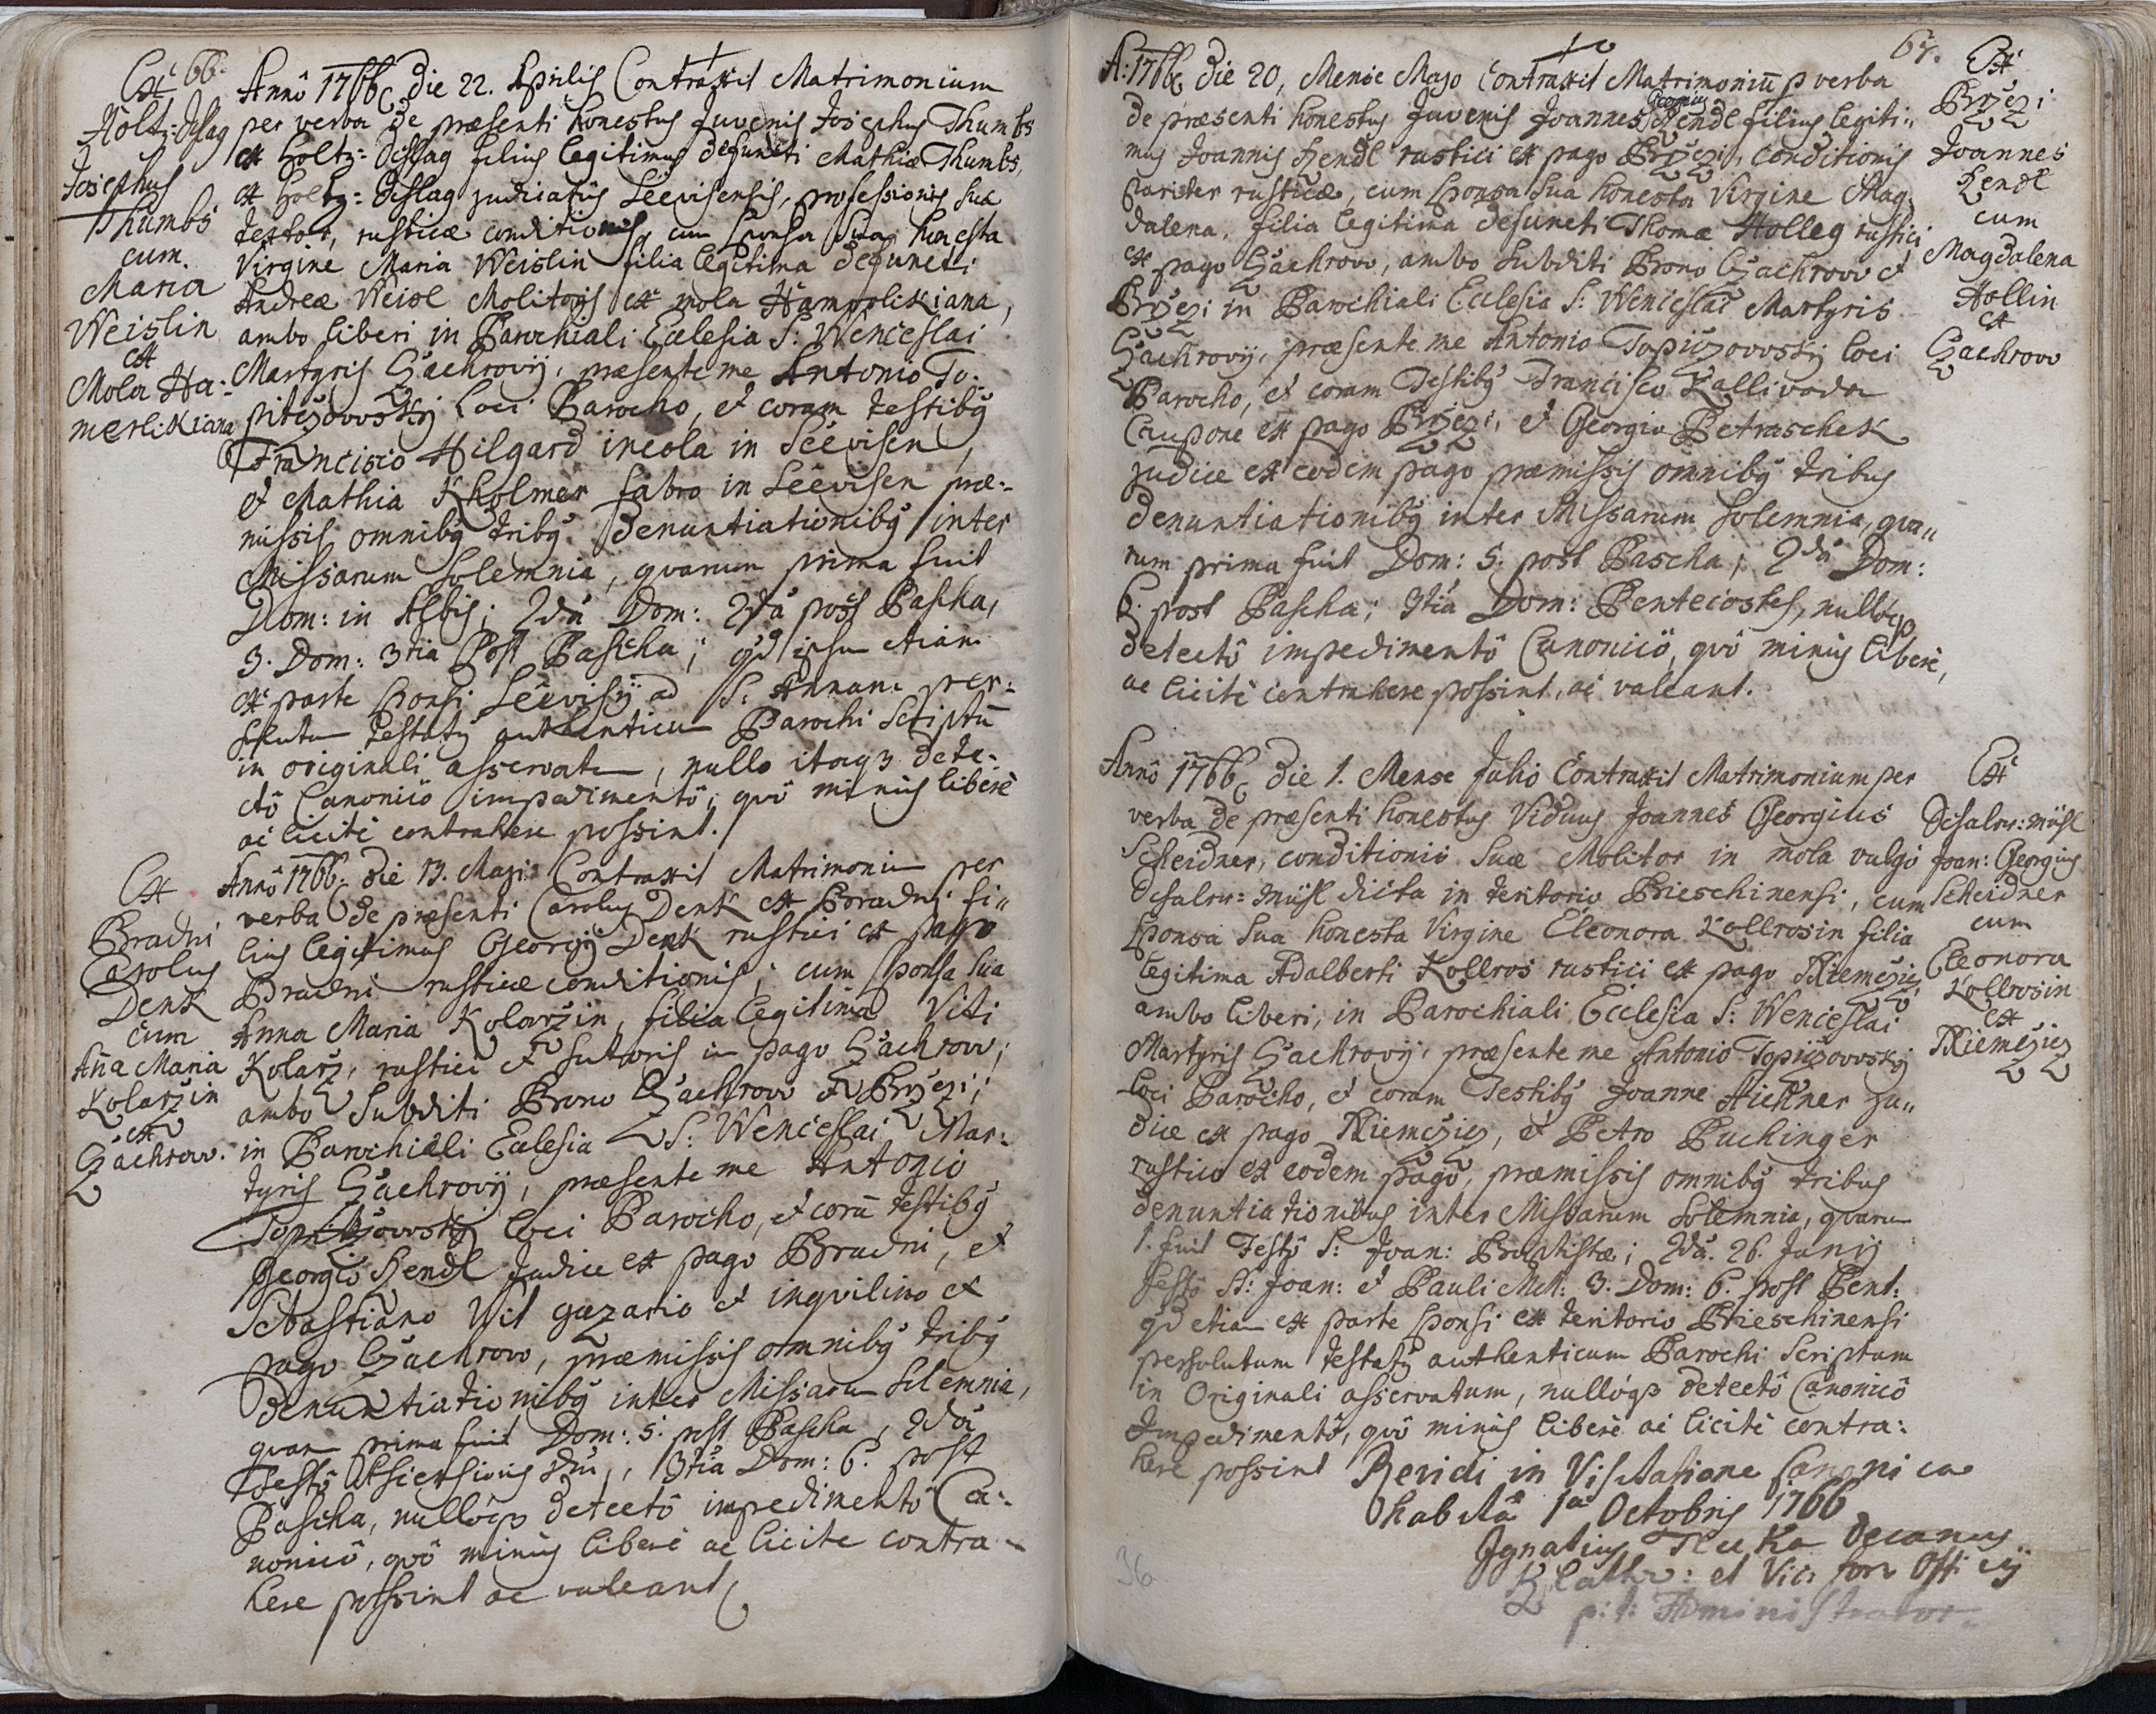 66.
Ex
Holtz-Schlag
Josephus
Thumbs
cum
Maria
Weislin
ex
Mola Ha-
merlikiana
Annô 1766 die 22. Aprilis Contraxit Matrimonium
per verba de præsenti honestus Juvenis Josephus Thumbs
ex Holtz-Schlag filius legitimus defuncti Mathiæ Thumbs,
ex Holtz-Schlag judiciatûs Séevisensis, professionis suæ
textor, rusticæ conditionis, cum Sponsa Sua honesta
Virgine Maria Weislin filia legitima defuncti
Andreæ Weisl Molitoris ex mola
ambo liberi in Parochiali Ecclesia S. Wenceslai
Martyris Czachrovij, præsente me Antonio To-
loci Parocho, et coram testibus
Francisco Hilgard incola in Séevisen,
et Mathia Kholmer fabro in Séevisen præ-
missis omnibus tribus denuntiationibus inter
Missarum Solemnia, quarum prima fuit
Dom: in Albis; 2da Dom: 2da post Pascha,
3. Dom: 3tia Post Pascha; qd ipsum etiam
ex parte Sponsi Séevisij ad S: Annam per-
solutum testatur authenticum Parochi Scriptum
in originali asservatum, nullo itaq3 dete-
ctô Canonicô impedimentô, quô minùs liberè
ac licitè contrahere possint.
Ex
Bradni
Carolus
Denk
cum
Anna Maria
Kolarzin
ex
Czachrow.
Annô 1766. die 13. Maji Contraxit Matrimonium per
verba de præsenti Carolus Denk ex Bradni fi-
lius legitimus Georgij Denk rustici ex pago
Bradni rusticæ conditionis; cum Sponsa Sua
Anna Maria Kolarzin, filia legitima Viti
Kolarz, rustici et sutoris in pago Czachrow;
ambo Subditi Prono Czachrow et Brzezi;
in Parochiali Ecclesia S: Wenceslai Mar-
tyris Czachrovij, præsente me Antonio
loci Parocho, et coram testibus
Georgio Hendl Judice ex pago Bradni, et
Sebastiano Wit gazario et inquilino ex
pago Czachrow, præmissis omnibus tribus
denuntiationibus inter Missarum Solemnia,
quarum prima fuit Dom: 5. post Pascha, 2da
Festô Ascensionis Dni, 3tia Dom: 6. post
Pascha, nullôq3 detectô impedimentô Ca-
nonicô, quô minùs liberè ac licite contra-
here possint ac valeant.
67.
A: 1766 die 20, Mense Majo Contraxit Matrimoniũ p verba
Georgius
de præsenti honestus Juvenis Joannes Hendl filius legiti-
mus Joannis Hendl rustici ex pago Brzezi, conditionis
pariter rusticæ, cum Sponsa Sua honesta Virgine Mag-
dalena, filia legitima defuncti Thomæ Holleg rustici
ex pago Czachrow, ambo Subditi Prono Czachrow et
Brzezi in Parochiali Ecclesia S: Wenceslai Martyris
Czachrovij, præsente me Antonio loci
Parocho, et coram Testibus Francisco Kallivoda
Caupone ex pago Brzezi, et Georgio Petraschek
judice ex eodem pago præmissis omnibus tribus
denuntiationibus inter Missarum Solemnia, qua-
rum prima fuit Dom: 5. post Pascha; 2da Dom:
6. post Pascha; 3tia Dom: Pentecostes, nullôq3
detectô impedimentô Canonicô, quô minùs liberè,
ac licitè contrahere possint, ac valeant.
Ex
Brzezi
Joannes
Hendl
cum
Magdalena
Hollin
ex
Czachrow
Annô 1766 die 1. Mense Julio Contraxit Matrimonium per
verba de præsenti honestus Viduus Joannes Georgius
Scheidner, conditionis suæ Molitor in mola vulgò
dicta in teritorio Prieschinensi, cum
Sponsa Sua honesta Virgine Eleonora Kollrosin filia
legitima Adalberti Kollros rustici ex pago Niemczicz,
ambo liberi, in Parochiali Ecclesia S: Wenceslai
Martyris Czachrovij, præsente me Antonio
loci Parocho, et coram Testibus Joanne Aichner Ju-
dice ex pago Niemczicz, et Petro Puchinger
rustico ex eodem pago, præmissis omnibus tribus
denuntiationibus inter Missarum Solemnia, quarum
1. fuit Festô S: Joan: Baptistæ; 2da. 26. Junij
festo SS: Joan: et Pauli MM: 3. Dom: 6. post Pent:
qd etiam ex parte Sponsi ex teritorio Prieschinensi
persolutum testatur authenticum Parochi Scriptum
in Originali asservatum, nullôq3 detectô Canonicô
Impedimentô, quô minùs liberè ac licitè contra-
here possint
Ex
Joan: Georgius
Scheidner
cum
Eleonora
Kollrosin
ex
Niemczicz
Revidi in Visitatione Canonica
habitâ 1a Octobris 1766
Ignatius Tluka Decanus
et Vic: for: Officij
p: t: Administrator
36